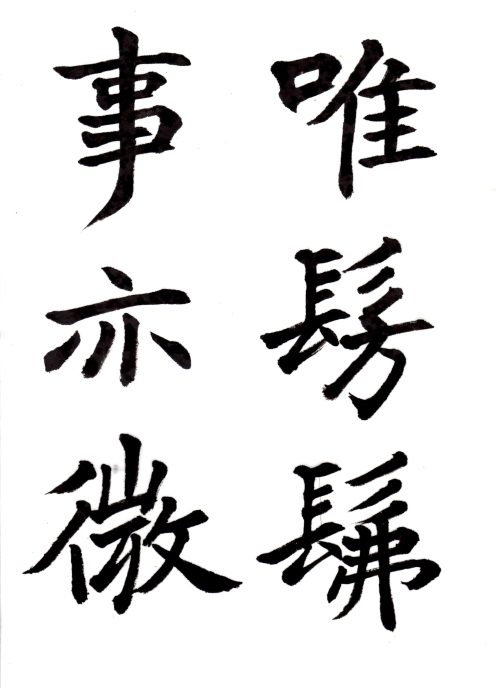 唯髣髴
事亦微